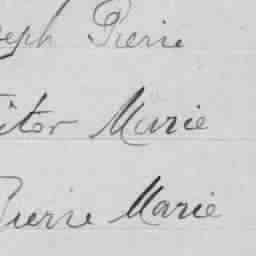 eph Pierre
ictor Marie
Pierre Marie